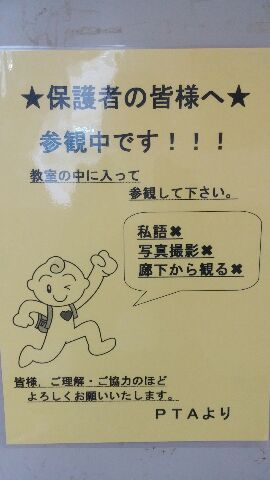 ★保護者の皆様へ★
参観中です！！！
教室の中に入って
参観して下さい。
私語✖
写真撮影✖
廊下から観る✖
皆様，ご理解・ご協力のほど
よろしくお願いいたします。
ＰＴＡより